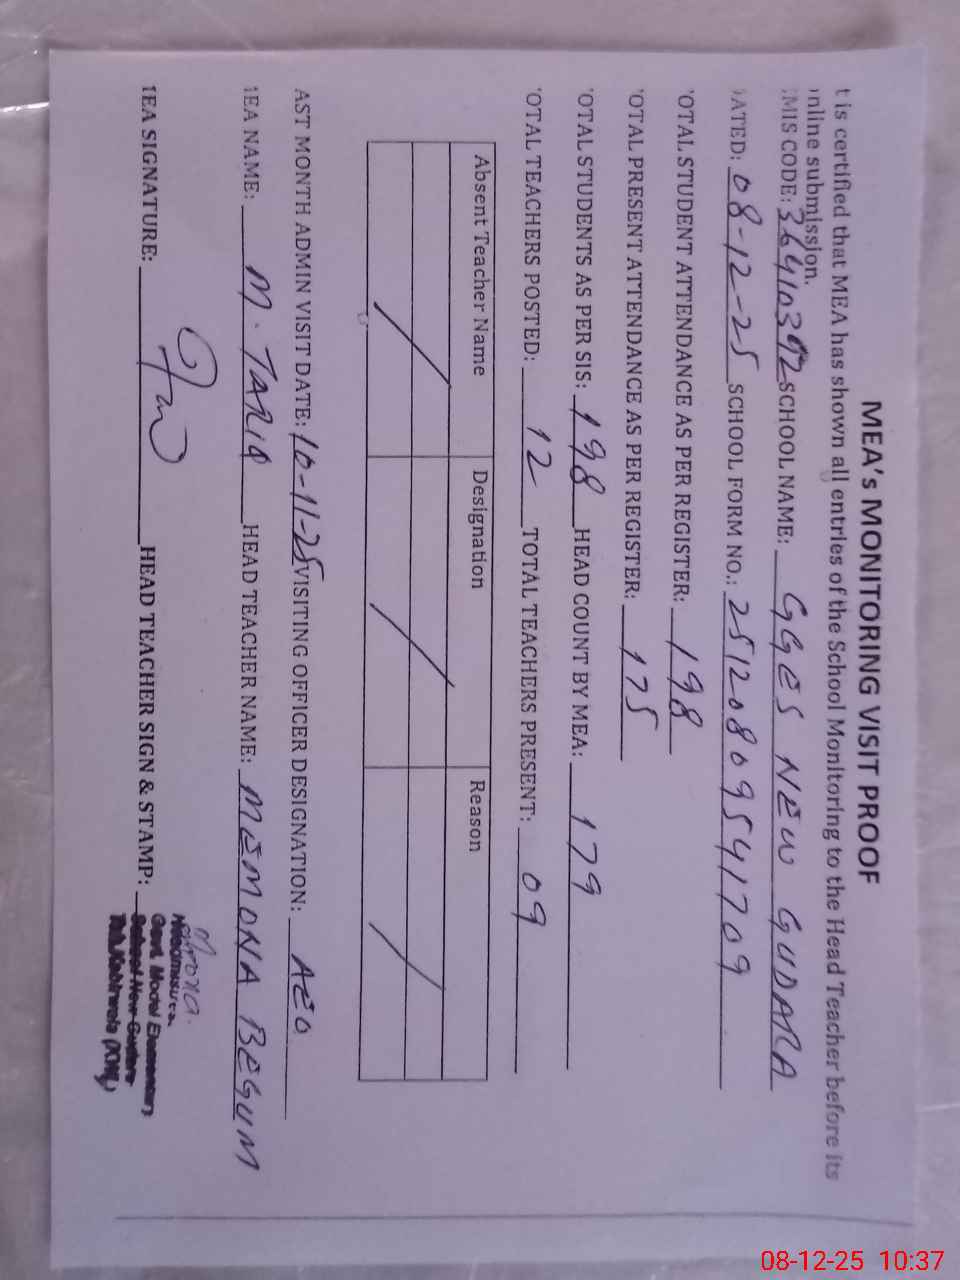 MEA's MONITORING VISIT PROOF
t is certified that MEA has shown all entries of the School Monitoring to the Head Teacher before its
nline submission.
EMIS CODE: 36410392 SCHOOL NAME: GGES NEW GUDARA
DATED: 08-12-25 SCHOOL FORM NO.: 25120809541709
OTAL STUDENT ATTENDANCE AS PER REGISTER: 198
OTAL PRESENT ATTENDANCE AS PER REGISTER: 175
OTAL STUDENTS AS PER SIS: 198 HEAD COUNT BY MEA: 179
OTAL TEACHERS POSTED: 12 TOTAL TEACHERS PRESENT: 09
Absent Teacher Name Designation Reason
/ / /
AST MONTH ADMIN VISIT DATE: 10-11-25 VISITING OFFICER DESIGNATION: AEO
MEA NAME: M. TARIQ HEAD TEACHER NAME: MEMONA BEGUM
MEA SIGNATURE: HEAD TEACHER SIGN & STAMP:
Headmistress
Govt. Model Elementary
School New Gudara
Kabirwala
08-12-25 10:37